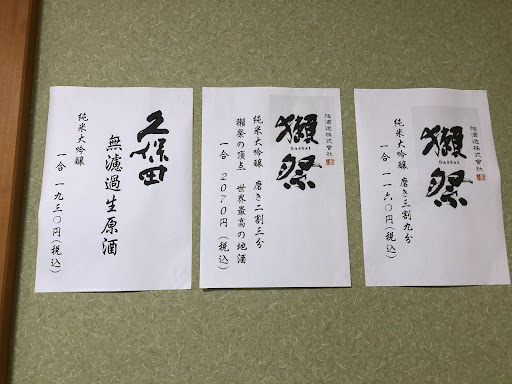 旭酒造株式會社
獺祭
DASSAI
純米大吟醸 磨き三割九分
一合 一一六〇円(税込)
旭酒造株式會社
獺祭
DASSAI
純米大吟醸 磨き二割三分
獺祭の頂点 世界最高の地酒
一合 2070円(税込)
久保田
無濾過生原酒
純米大吟醸
一合 一九三〇円(税込)